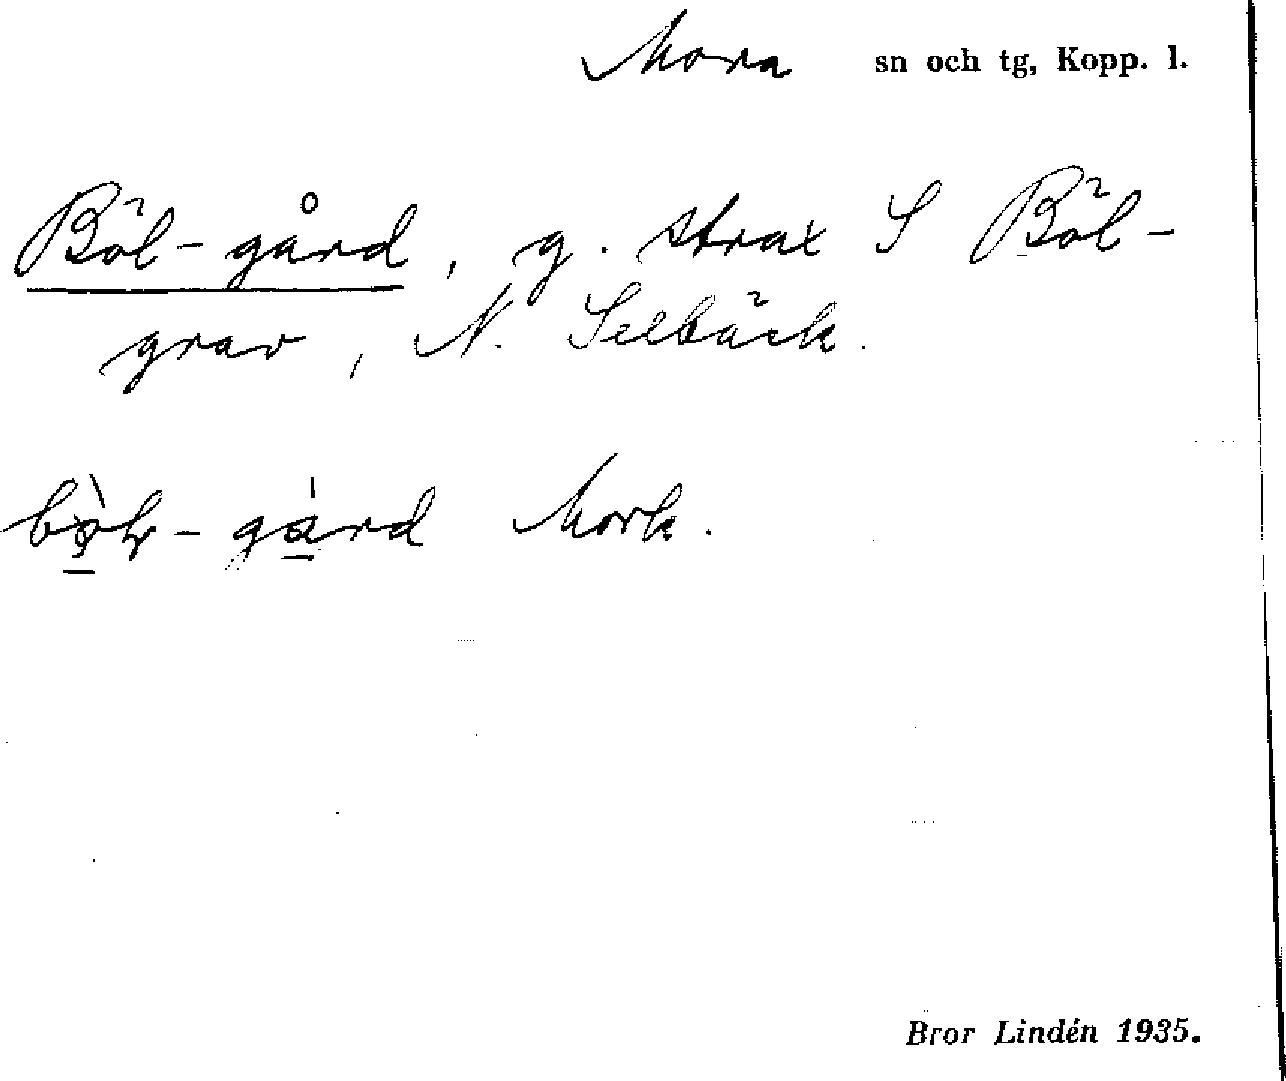 Mora sn och tg, Kopp. l.
Böl-gård, g. strax S Böl-
grav, N. Selbäck.
-gård Mork.
Bror Lindén 1935.